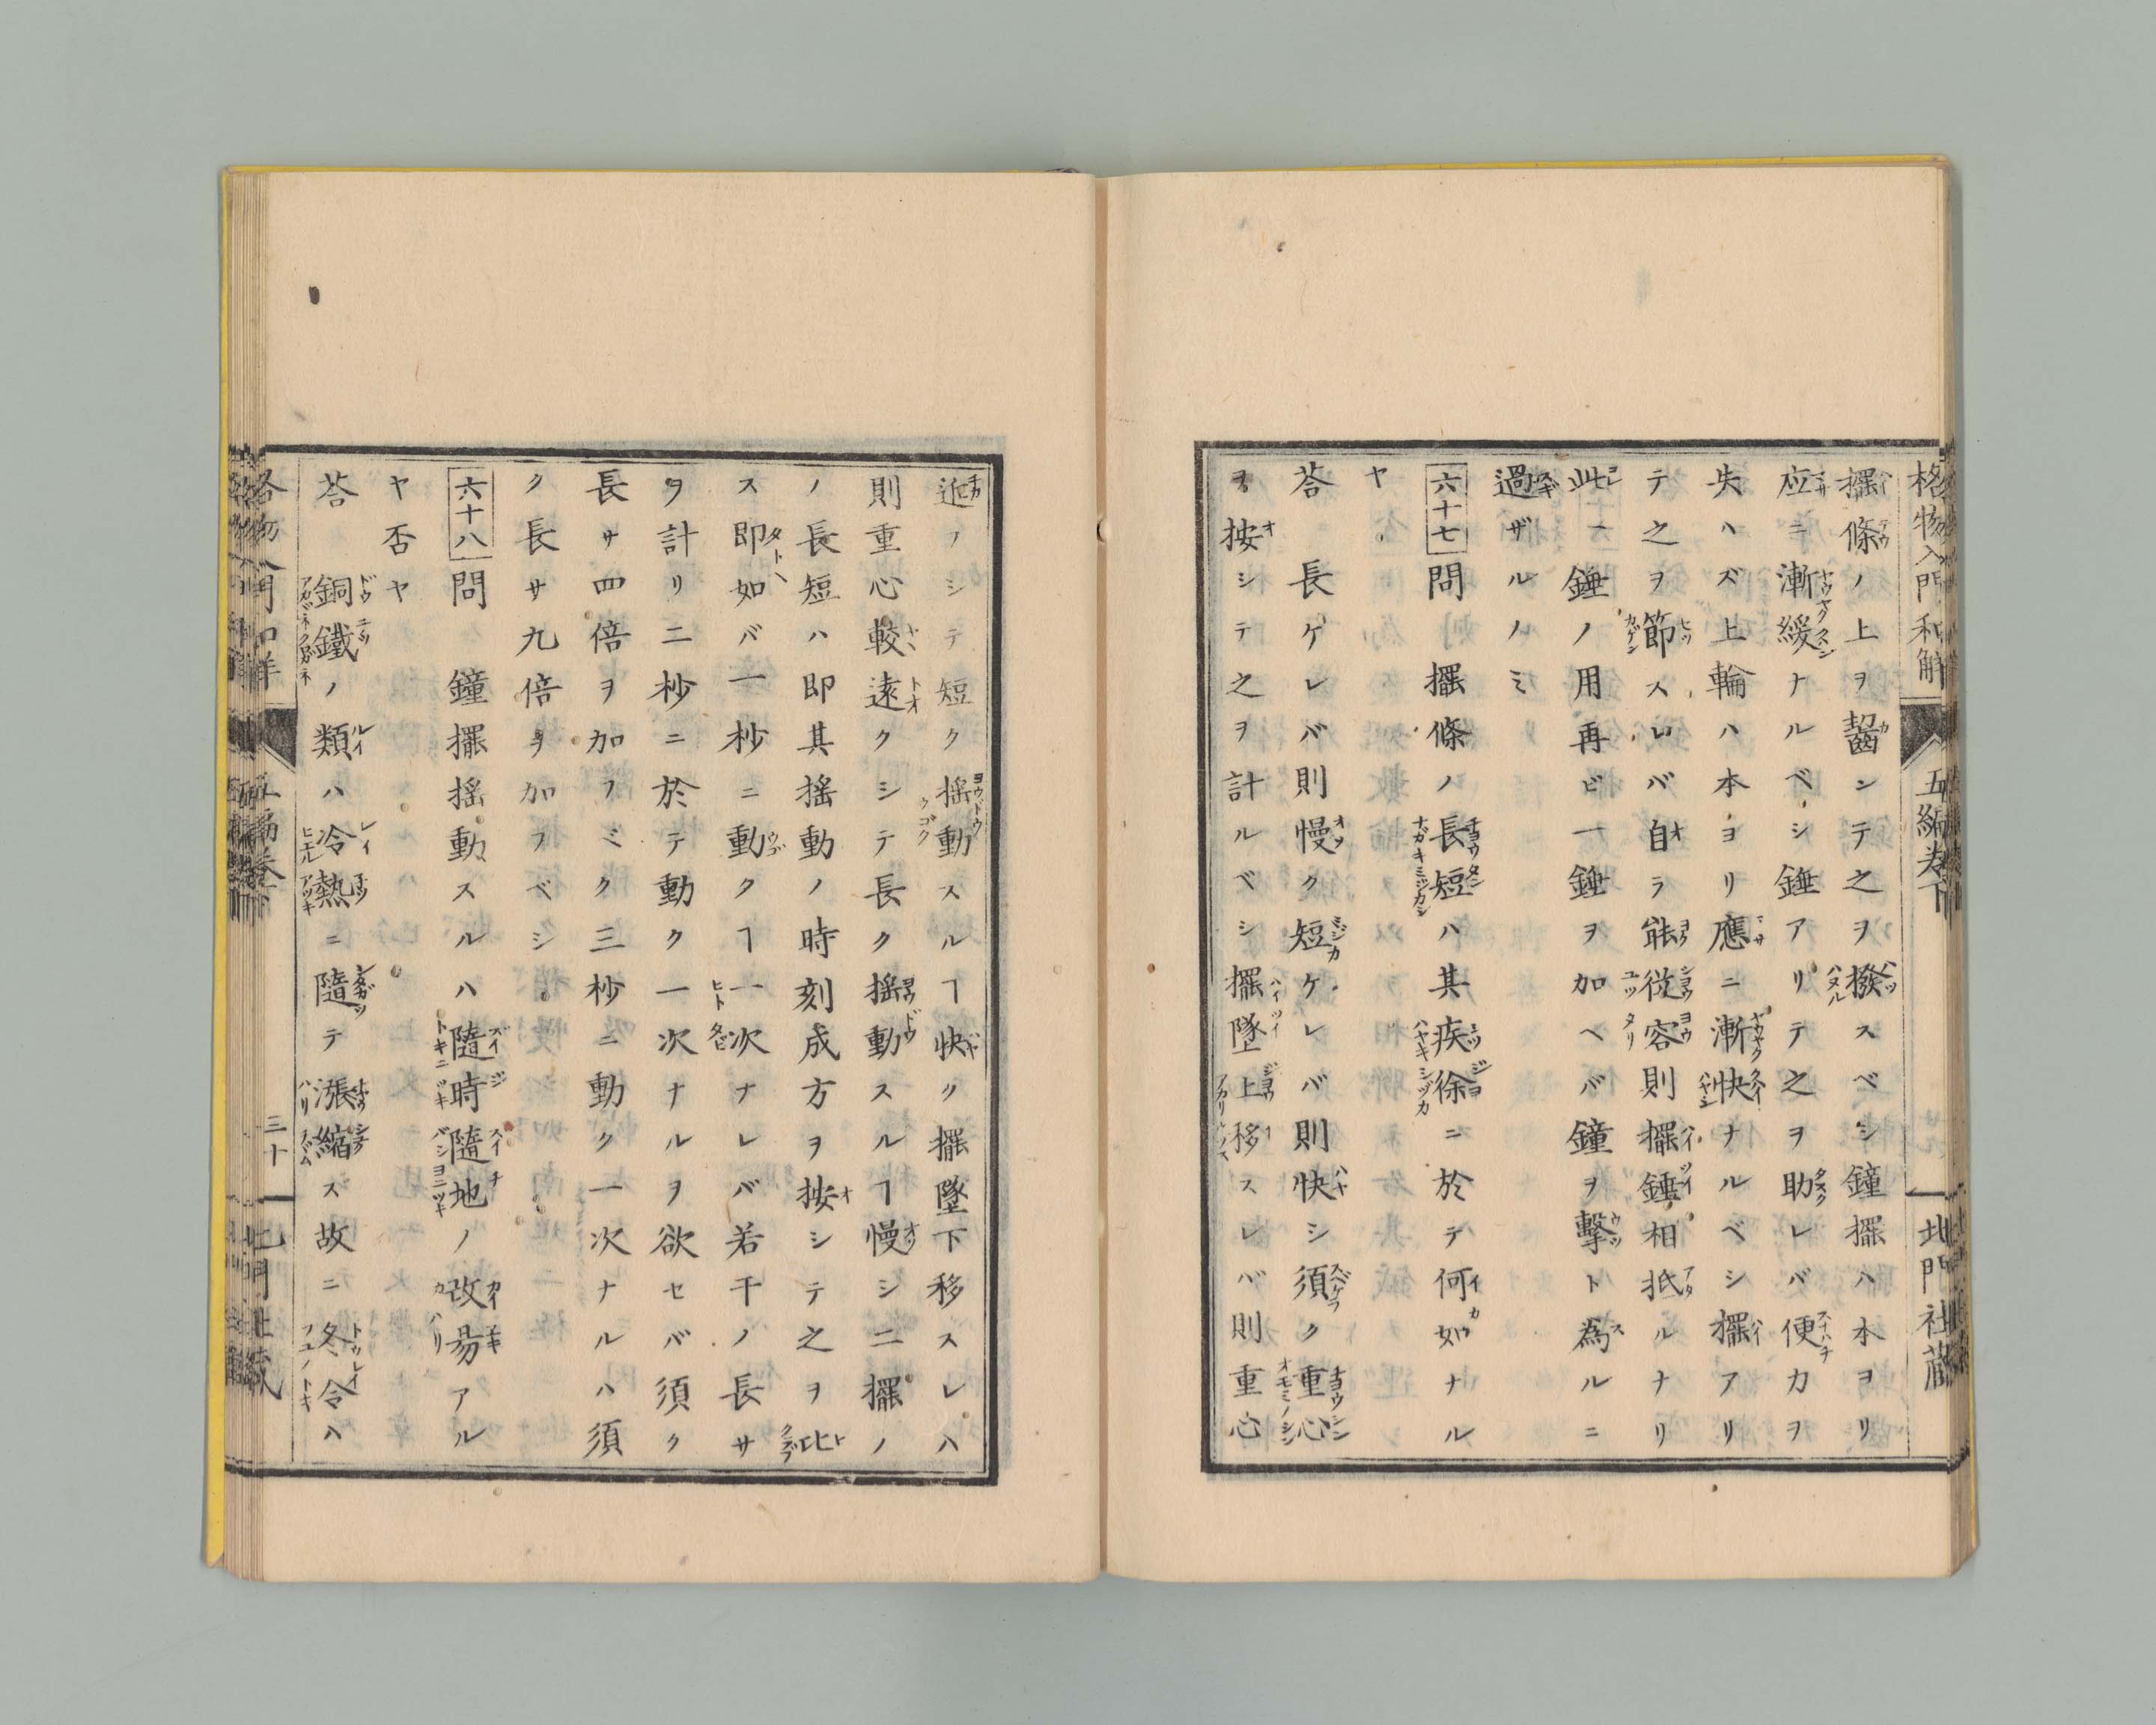 格物入門和解 五編卷下 北門社藏
擺條ノ上ヲ齧ンテ之ヲ撥スベシ鐘擺ハ本ヨリ
应ニ漸緩ナルベシ錘アリテ之ヲ助レバ便カヲ
失ハズ上輪ハ本ヨリ應ニ漸快ナルベシ擺アリ
テ之ヲ節スレバ自ラ能從容則擺錘相抵ルナリ
此一錘ノ用再ビ一錘ヲ加ヘバ鐘ヲ擊ト為ルニ
過ザルノミ
六十七問 擺條ノ長短ハ其疾徐ニ於テ何如ナル
ヤ
荅 長ケレバ則慢ク短ケレバ則快シ須ク重心
ヲ按シテ之ヲ計ルベシ擺墜上移スレバ則重心
近フシテ短ク揺動スルヿ快ク擺墜下移スレハ
則重心較遠クシテ長ク揺動スルヿ慢シ二擺ノ
ノ長短ハ即其揺動ノ時刻成方ヲ按シテ之ヲ比
ス即如バ一秒ニ動クヿ一次ナレバ若干ノ長サ
ヲ計リ二秒ニ於テ動ク一次ナルヲ欲セバ須ク
長サ四倍ヲ加フベク三秒ニ動ク一次ナルハ須
ク長サ九倍ヲ加フベシ
六十八問 鐘擺揺動スルハ隨時隨地ノ改易アル
ヤ否ヤ
荅 銅鐵ノ類ハ冷熱ニ隨テ漲縮ス故ニ冬令ハ
三十